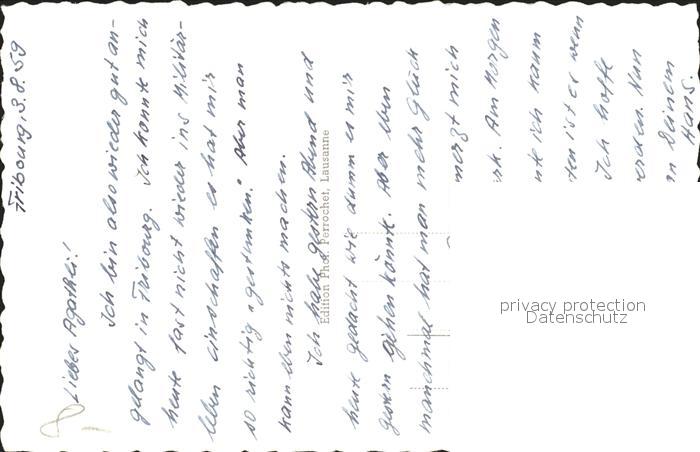 Fribourg, 3.8.59
Liebes Agathli!
Ich bin also wieder gut an-
gelangt in Fribourg. Ich konnte mich
heute fast nicht wieder ins Militär-
leben einschaffen es hat mir
so richtig "gestunken." Aber man
kann eben nichts machen.
Ich habe gestern Abend und
heute gedacht wie dumm es mir
gestern gehen könnte. Aber eben
manchmal hat man mehr Glück
merzt mich
rk. Am Morgen
nte ich kaum
ten ist es wenn
Ich hoffe
erden. Nun
n Deinem
Hans.
Edition Phot. Perrochet, Lausanne
privacy protection
Datenschutz